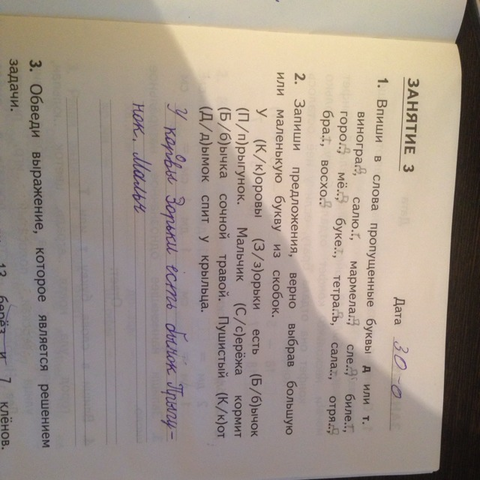 ЗАНЯТИЕ 3
Дата 30-0
1. Впиши в слова пропущенные буквы д или т.
виногра.д., салю.т., мармела.д., сле.д., биле.т.,
горо.д., мё.д., буке.т., тетра.д.ь, сала.т., отря.д.,
бра.т., восхо.д.
2. Запиши предложения, верно выбрав большую
или маленькую букву из скобок.
У (К/к)оровы (З/з)орьки есть (Б/б)ычок
(П/п)рыгунок. Мальчик (С/с)ерёжа кормит
(Б/б)ычка сочной травой. Пушистый (К/к)от
(Д/д)ымок спит у крыльца.
У коровы Зорьки есть бычок Прыгу-
нок. Мальч
3. Обведи выражение, которое является решением
задачи.
13 берёз и 7 клёнов.